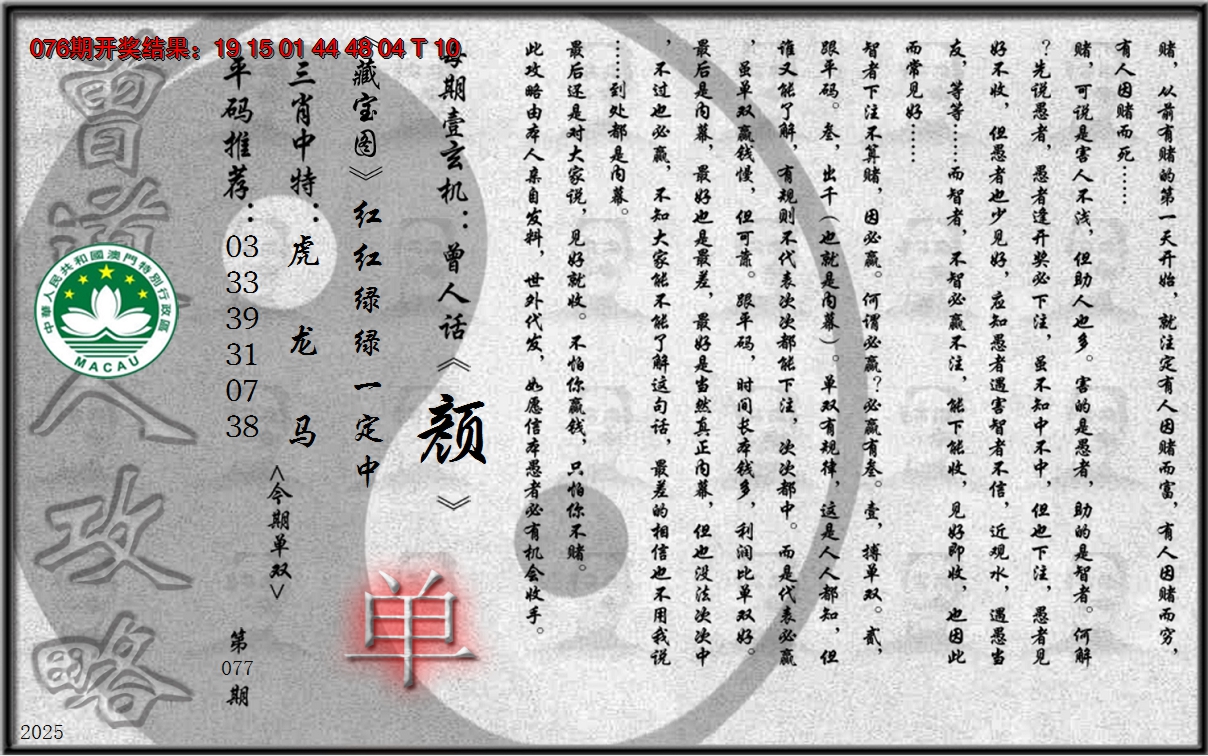 076期开奖结果：19 15 01 44 48 04 T 10
赌，从前有赌的第一天开始，就注定有人因赌而富，有人因赌而穷，
有人因赌而死……
赌，可说是害人不浅，但助人也多。害的是愚者，助的是智者。何解
？先说愚者，愚者逢开奖必下注，虽不知中不中，但也下注，愚者见
好不收，但愚者也少见好，应知愚者遇害智者不信，近观水，遇愚当
友，等等……而智者，不智必赢不注，能下能收，见好即收，也因此
而常见好……
智者下注不算赌，因必赢。何谓必赢？必赢有叁。壹，搏单双。贰，
跟平码。叁，出千（也就是内幕）。单双有规律，这是人人都知，但
谁又能了解，有规则不代表次次都能下注，次次都中。而是代表必赢
，虽单双赢钱慢，但可靠。跟平码，时间长本钱多，利润比单双好。
最后是内幕，最好也是最差，最好是当然真正内幕，但也没法次次中
，不过也必赢，不知大家能不能了解这句话，最差的相信也不用我说
……到处都是内幕。
最后还是对大家说，见好就收。不怕你赢钱，只怕你不赌。
此攻略由本人亲自发料，世外代发，如愿信本愚者必有机会收手。
每期壹玄机：曾人话《颜》
《藏宝图》红红绿绿一定中
单
三肖中特：虎 龙 马
<今期单双>
平码推荐：03 33 39 31 07 38
第077期
曾道人攻略
中華人民共和國澳門特別行政區
MACAU
2025